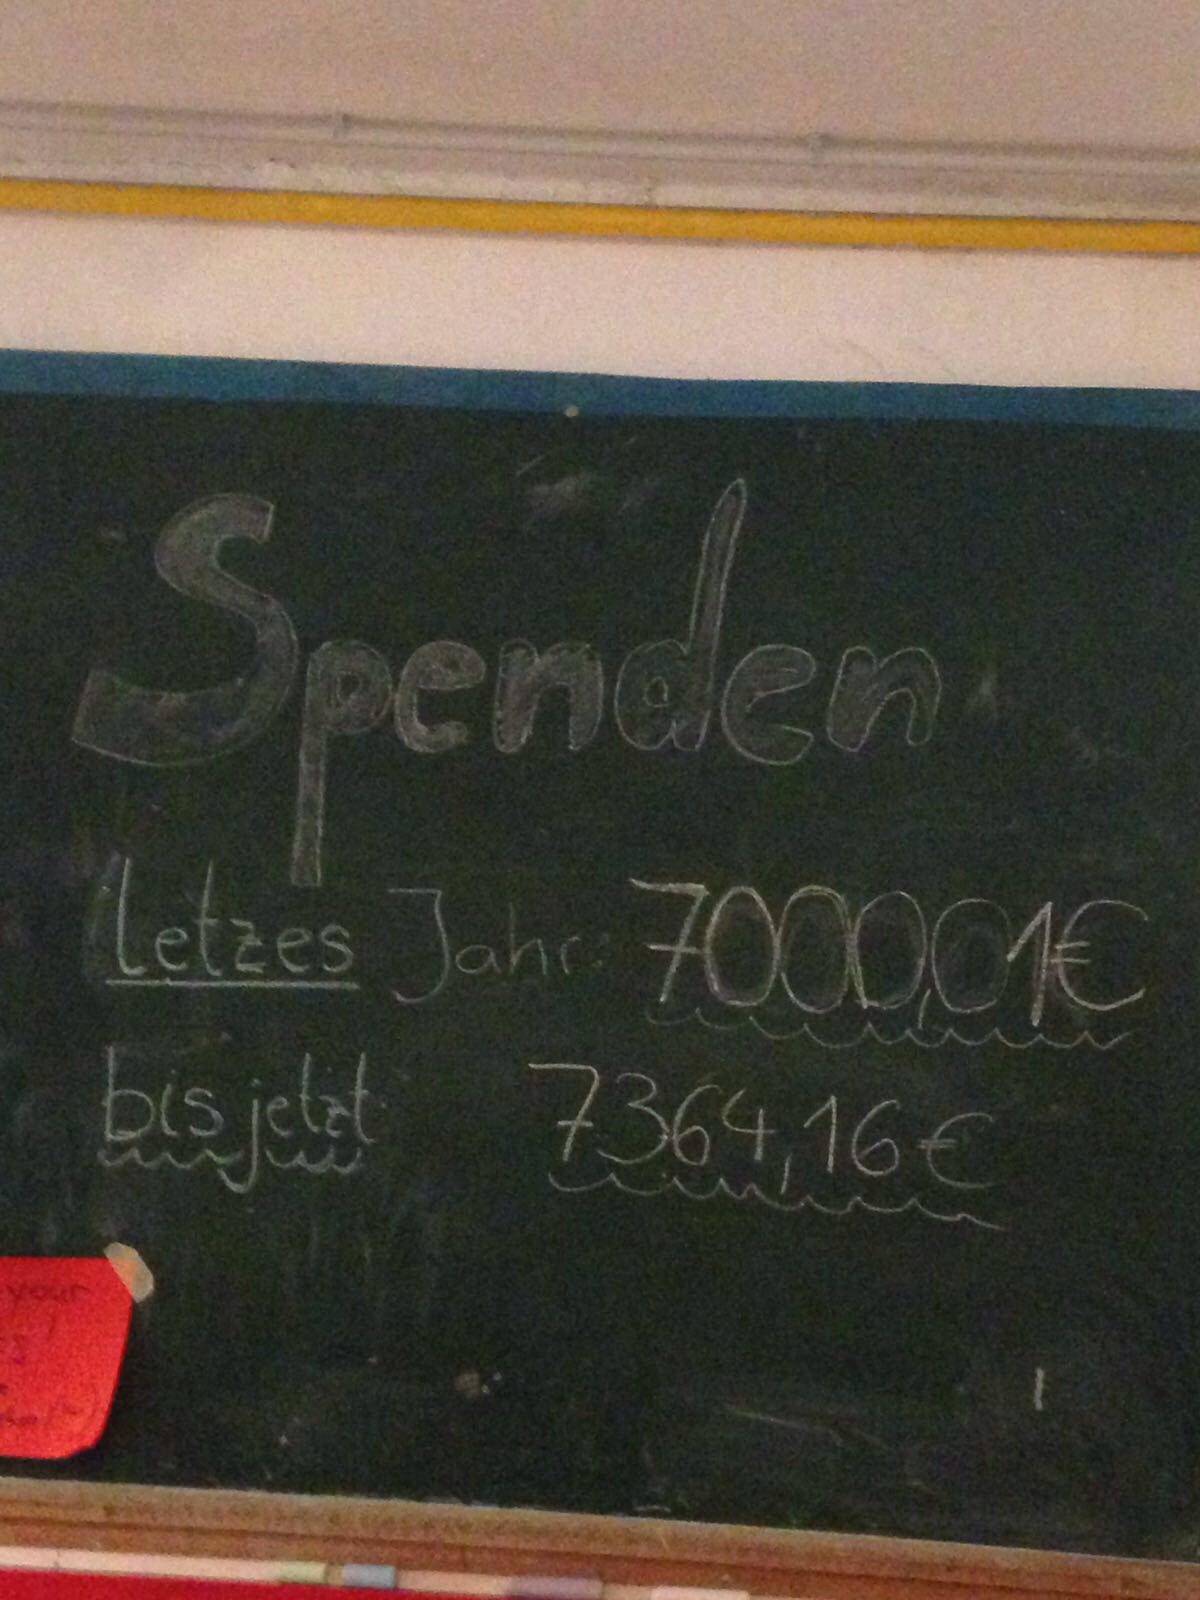 Spenden
letzes Jahr: 7000,01€
bis jetzt 7364,16€
your